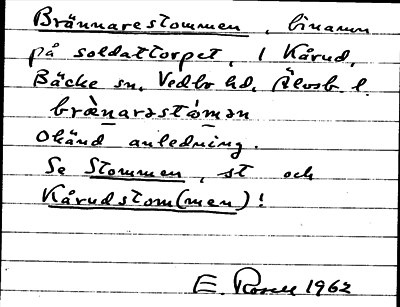 Brännarestommen, binamn
på soldattorpet, i Kårud,
Bäcke sn, Vedbo hd, Älvsb. l.
bræ̀narəstómən
Okänd anledning.
Se Stommen, st och
Kårudstom(men)!
E. Rosell 1962